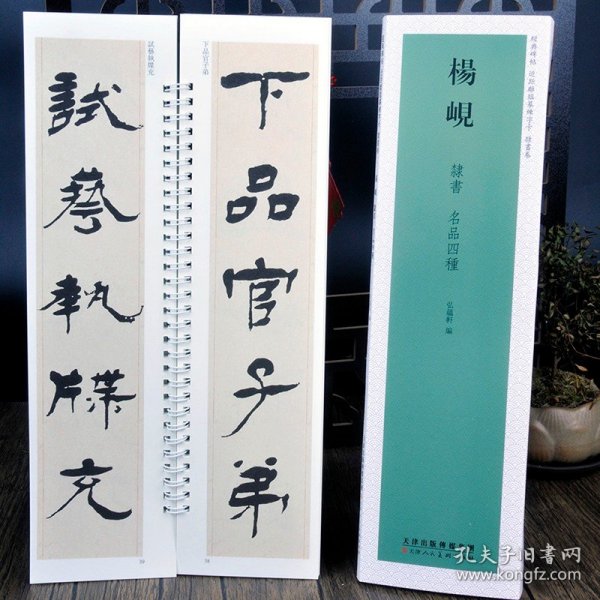 下品官子弟
下品官子弟
38
試藝執牒充
試藝執牒充
39
經典碑帖 近距離臨摹練字卡 隸書卷
楊峴
隸書 名品四種
弘蘊軒 編
天津出版傳媒集團
天津人民美術
孔夫子旧书网
www.kongfz.com